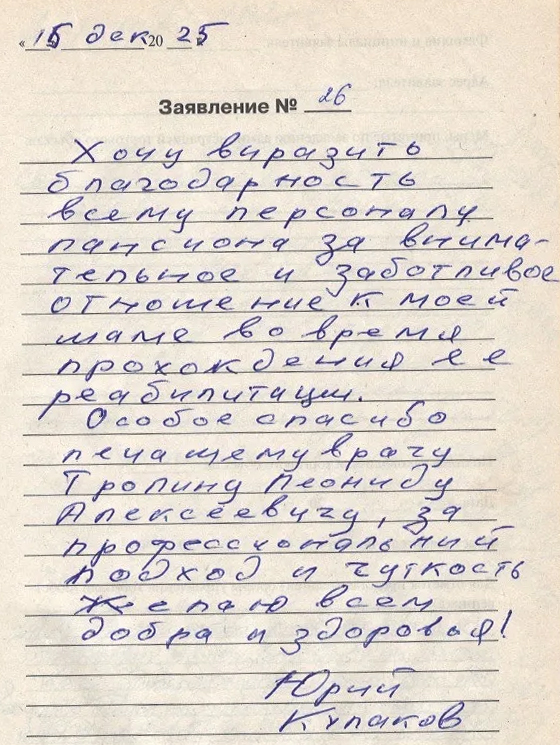 « 15 » дек 20 25
Заявление № 26
Хочу виразить
благодарность
всему персоналу
пансиона за внима-
тельное и заботливое
отношение к моей
маме во время
прохождения ее
реабилитации.
Особое спасибо
лечащему врачу
Тропину Леониду
Алексеевичу, за
профессиональний
подход и чуткость
Желаю всем
добра и здоровья!
Юрий
Кулаков